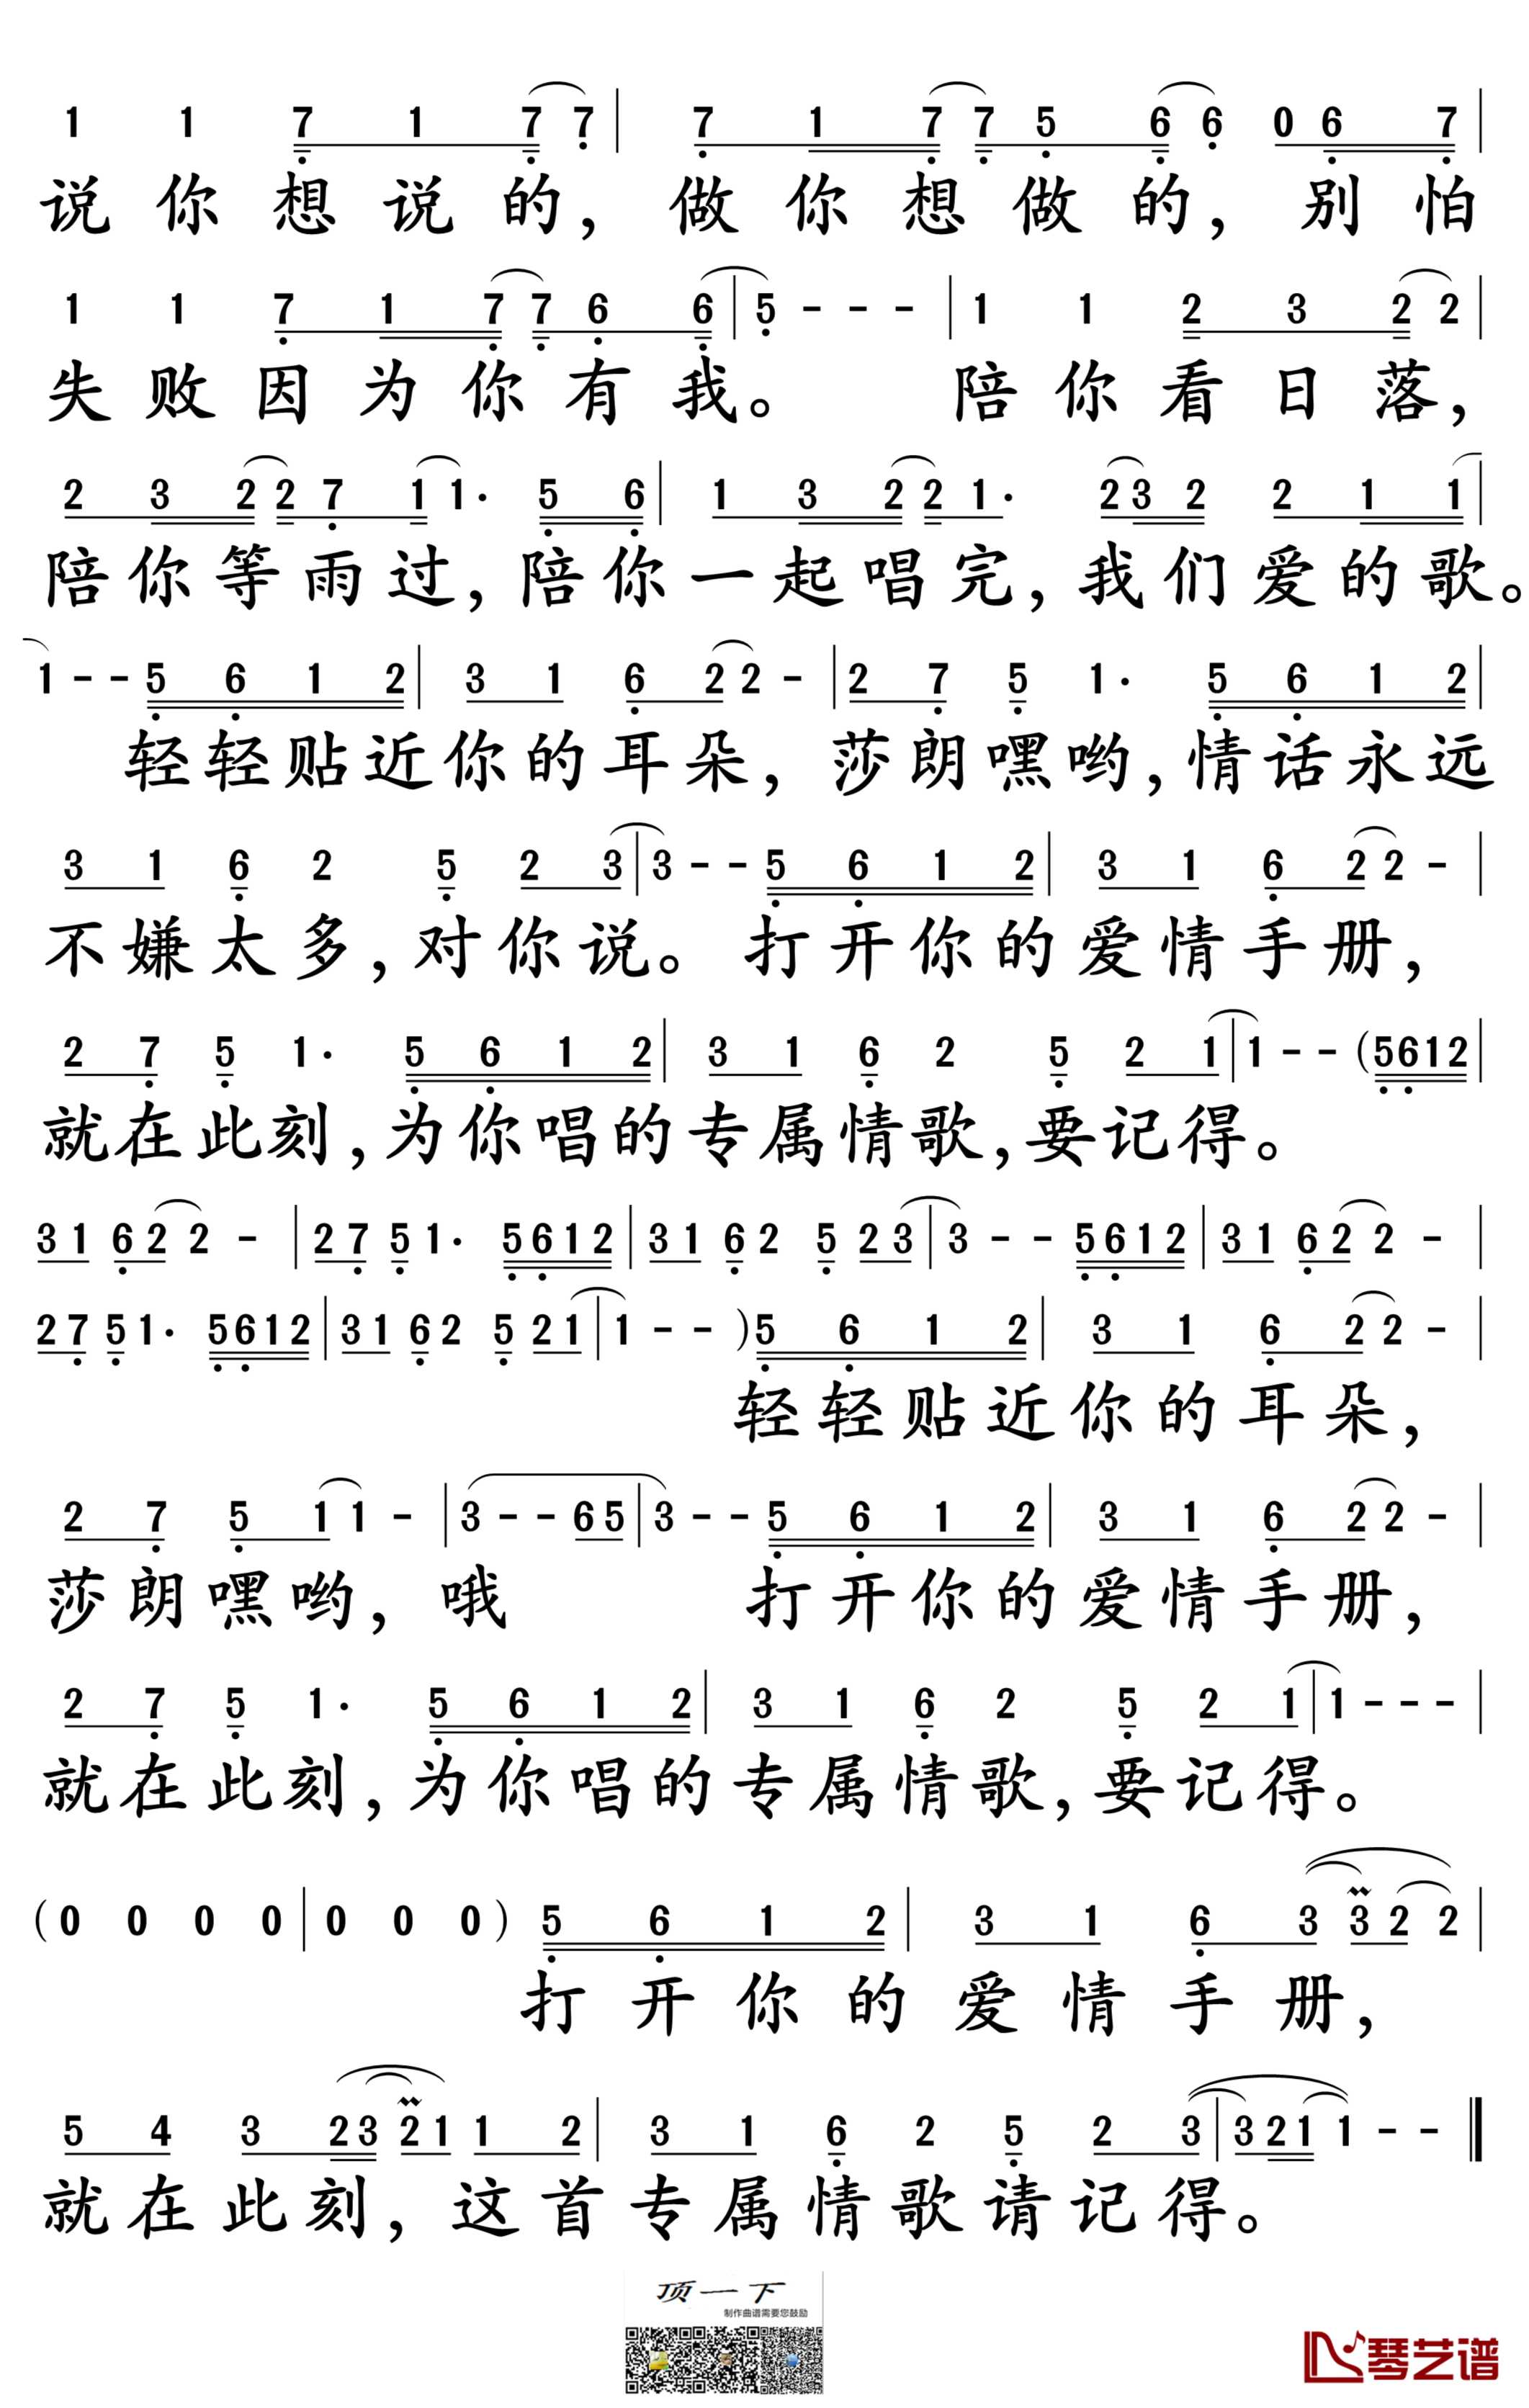 1 1 7 1 7 7 | 7 1 7 7 5 6 6 0 6 7 |
说你想说的，做你想做的，别怕
1 1 7 1 7 7 6 6 | 5 - - - | 1 1 2 3 2 2 |
失败因为你有我。陪你看日落，
2 3 2 2 7 1 1· 5 6 | 1 3 2 2 1· 2 3 2 2 1 1 |
陪你等雨过，陪你一起唱完，我们爱的歌。
1 - - 5 6 1 2 | 3 1 6 2 2 - | 2 7 5 1· 5 6 1 2 |
轻轻贴近你的耳朵，莎朗嘿哟，情话永远
3 1 6 2 5 2 3 | 3 - - 5 6 1 2 | 3 1 6 2 2 - |
不嫌太多，对你说。打开你的爱情手册，
2 7 5 1· 5 6 1 2 | 3 1 6 2 5 2 1 | 1 - - (5 6 1 2 |
就在此刻，为你唱的专属情歌，要记得。
3 1 6 2 2 - | 2 7 5 1· 5 6 1 2 | 3 1 6 2 5 2 3 | 3 - - 5 6 1 2 | 3 1 6 2 2 - |
2 7 5 1· 5 6 1 2 | 3 1 6 2 5 2 1 | 1 - - ) 5 6 1 2 | 3 1 6 2 2 - |
轻轻贴近你的耳朵，
2 7 5 1 1 - | 3 - - 6 5 | 3 - - 5 6 1 2 | 3 1 6 2 2 - |
莎朗嘿哟，哦 打开你的爱情手册，
2 7 5 1· 5 6 1 2 | 3 1 6 2 5 2 1 | 1 - - - |
就在此刻，为你唱的专属情歌，要记得。
(0 0 0 0 | 0 0 0 ) 5 6 1 2 | 3 1 6 3 3 2 2 |
打开你的爱情手册，
5 4 3 2 3 2 1 1 2 | 3 1 6 2 5 2 3 | 3 2 1 1 - - ‖
就在此刻，这首专属情歌请记得。
顶一下
制作曲谱需要您鼓励
琴艺谱